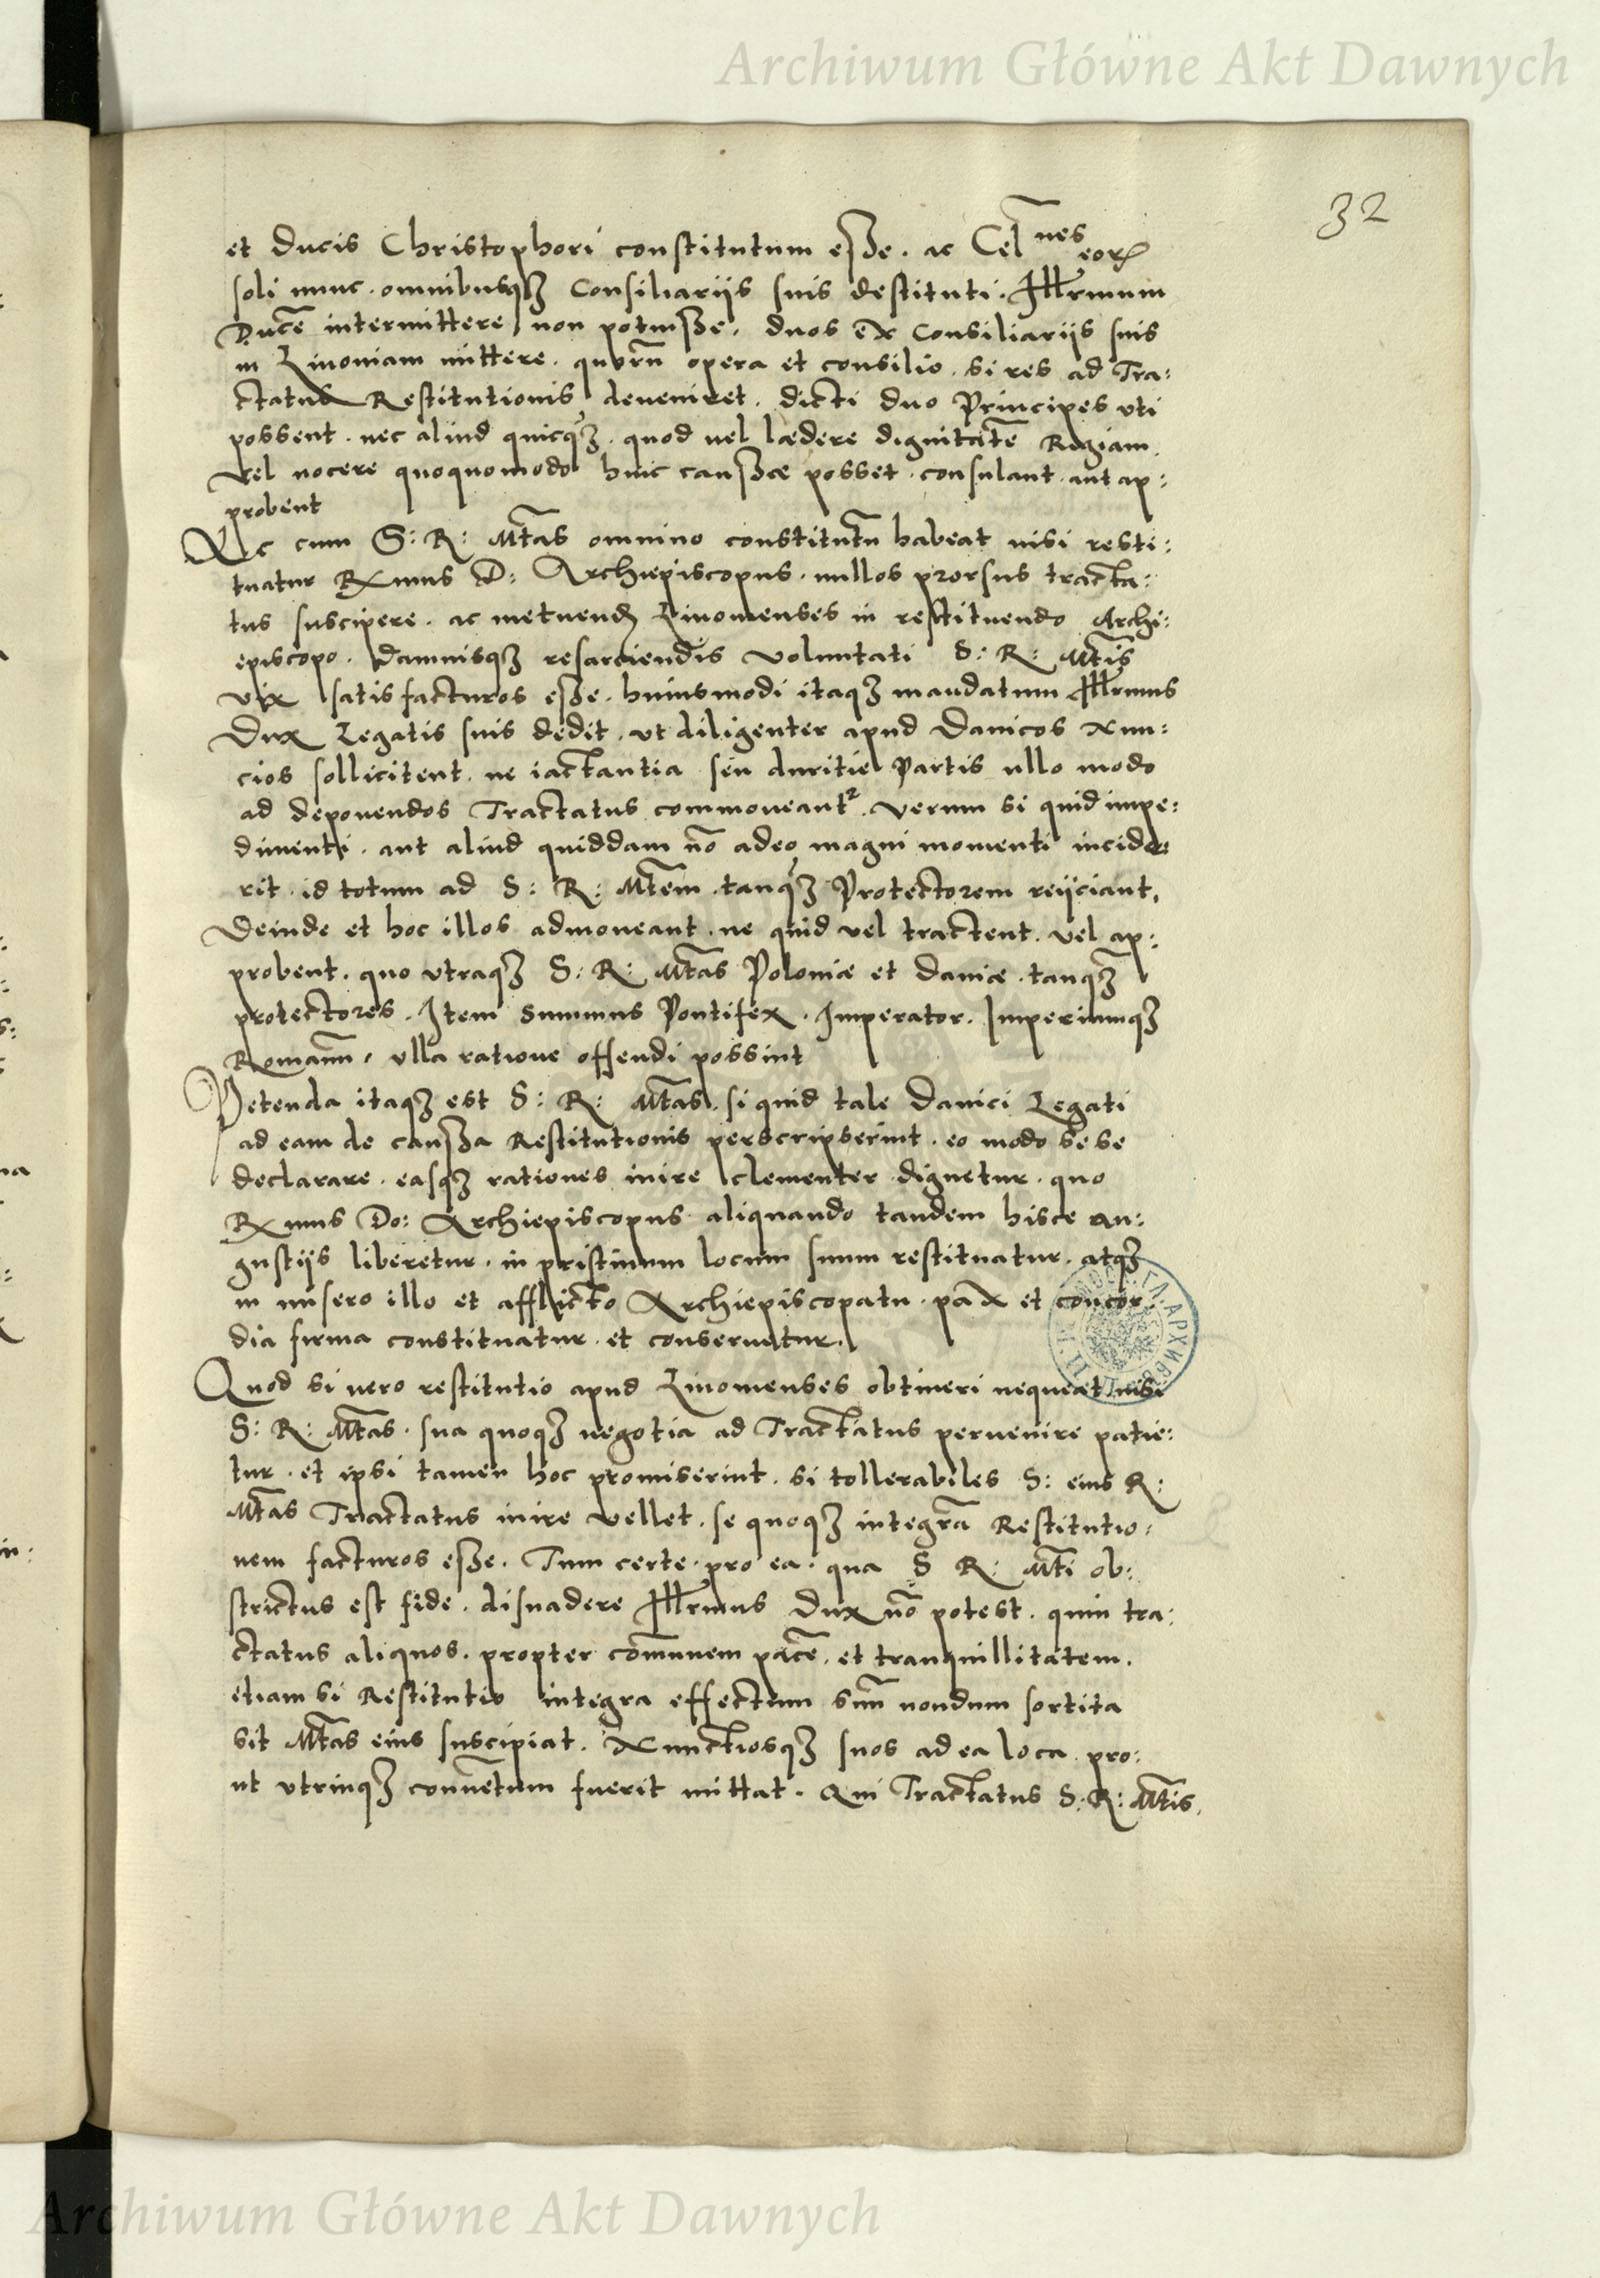 Archiwum Główne Akt Dawnych
32
et Ducis Christophori constitutum esße. ac Cel^nes eor
soli nunc. omnibusqȝ Consiliarijs suis destituti. Illrmum
Ducē intermittere non potuisße. duos ex Consiliarijs suis
in Liuoniam mittere. quorū opera et consilio. si res ad Tra:
ctatus Restitutionis deueniret. dicti duo Principes vti
possent. nec aliud quicqȝ. quod uel lædere dignitatē Regiam.
vel nocere quoquomodo huic caussæ posset. consulant. aut ap:
probent
Nec cum S: R: Mtas omnino constitutū habeat nisi resti:
tuatur Rxmus D: Archiepiscopus. nullos prorsus tracta:
tus suscipere. ac metuend Liuonienses in restituendo Archi:
episcopo. Damnisqȝ resarciendis voluntati S: R: Mtis
vix satis facturos esße. huiusmodi itaqȝ mandatum Illrmus
Dux Legatis suis dedit. vt diligenter apud Danicos Nun:
cios sollicitent. ne iactantia seu duritie Partis ullo modo
ad deponendos Tractatus commoueant². Verum si quid impe:
dimenti. aut aliud quiddam nō adeo magni momenti incide:
rit. id totum ad S: R: Mtem. tanqȝ Protectorem reijciant.
Deinde et hoc illos admoneant. ne quid vel tractent. vel ap:
probent. quo vtraqȝ S: R: Mtas Poloniæ et Daniæ. tanqȝ
protectores. Item Summus Pontifex. Imperator. Imperiumqȝ
Romanū, vlla ratione offendi possint
Petenda itaqȝ est S: R: Mtas. si quid tale Danici Legati
ad eam de causßa Restitutionis perscripserint. eo modo sese
declarare. easqȝ rationes inire clementer dignetur. quo
Rxmus Do: Archiepiscopus aliquando tandem hisce an:
gustijs liberetur. in pristinum locum suum restituatur. atqȝ
in misero illo et afflicto Archiepiscopatu. pax et concor:
dia firma constituatur. et conseruetur.
Quod si uero restitutio apud Liuonienses obtineri nequeat nisi
S: R: Mtas. sua quoqȝ negotia ad Tractatus peruenire patie:
tur. et ipsi tamen hoc promiserint. si tollerabiles S: eius R:
Mtas Tractatus inire vellet. se quoqȝ integrā Restitutio:
nem facturos esße. Tum certe. pro ea. qua S R: Mti ob:
strictus est fide. disuadere Illrmus Dux nō potest. quin tra:
ctatus aliquos. propter com̄unem pacē. et tranquillitatem.
etiam si Restitutio integra effectum suū nondum sortita
sit Mtas eius suscipiat. Nunctiosqȝ suos ad ea loca. pro:
ut vtrinqȝ conuētum fuerit mittat. Qui Tractatus S: R: Mtis.
Archiwum Główne Akt Dawnych